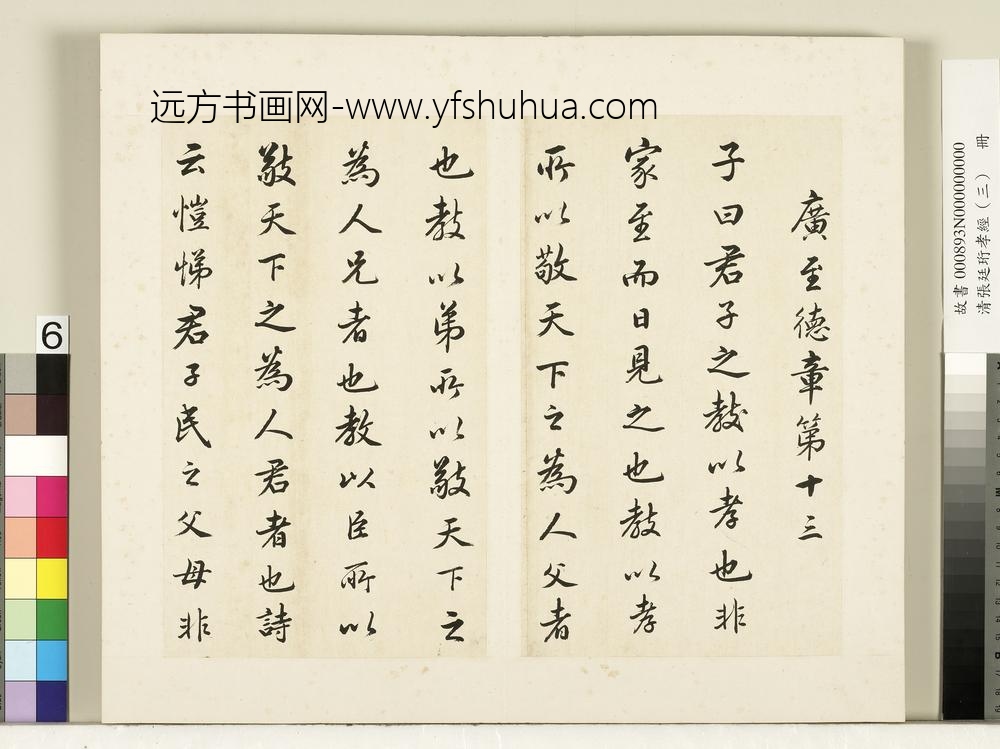 远方书画网-www.yfshuhua.com
廣至德章第十三
子曰君子之教以孝也非
家至而日見之也教以孝
所以敬天下之為人父者
也教以弟所以敬天下之
為人兄者也教以臣所以
敬天下之為人君者也詩
云愷悌君子民之父母非
故書 000893N000000000
清張廷珩孝經(三) 冊
6